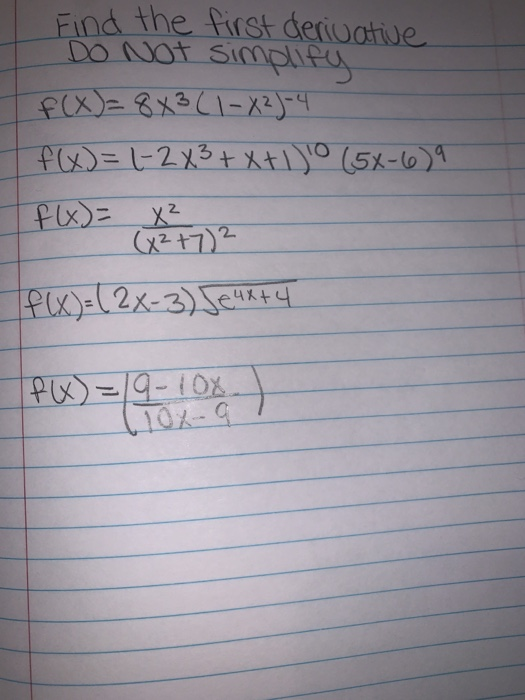 Find the first derivative
DO NOT simplify
f(x)= 8x³(1-x²)⁻⁴
f(x)= (-2x³+x+1)¹⁰ (5x-6)⁹
f(x)= x²
(x²+7)²
f(x)=(2x-3)√e⁴ˣ⁺⁴
f(x)=(9-10x
10x-9)